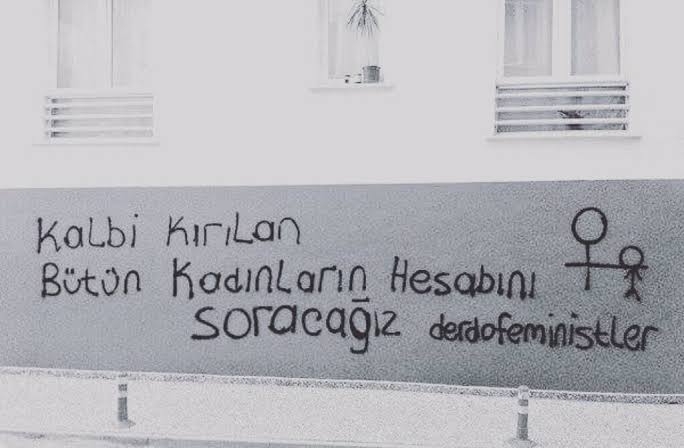 Kalbi Kırılan
Bütün Kadınların Hesabını
Soracağız derdofeministler